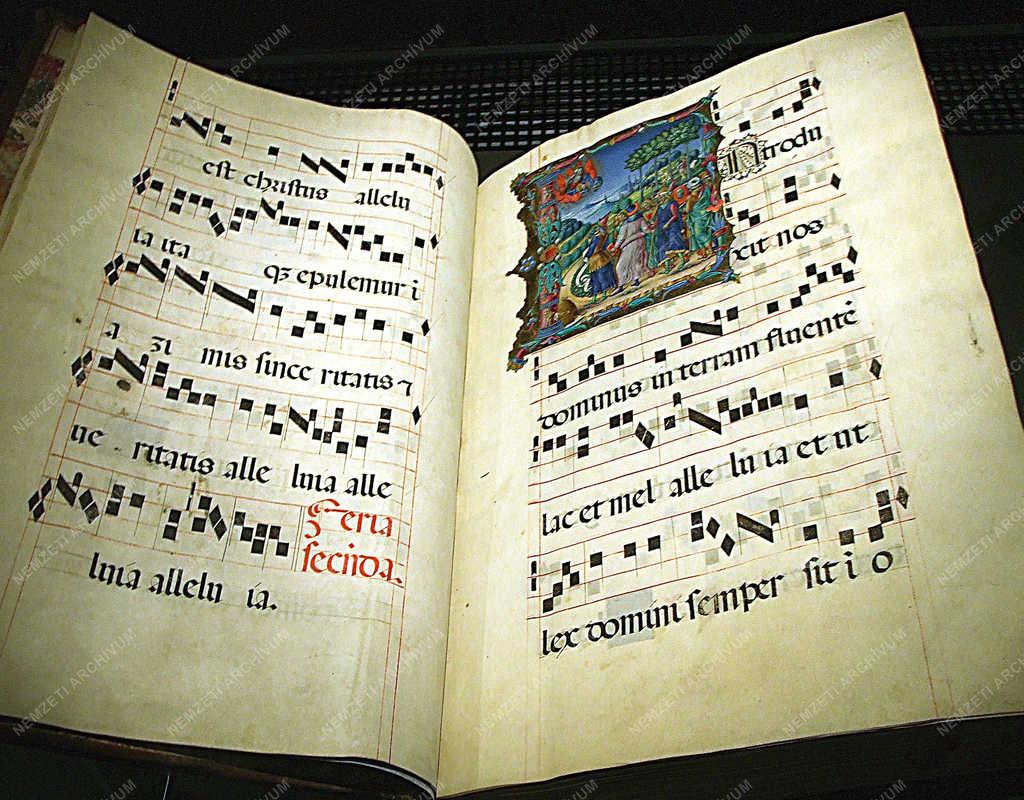 est christus allelu
ia ita qz epulemur i
a zi mis since ritatis ⁊
ue ritatis alle luia alle
feria
luia allelu ia.
secūda.
Introdu
xit nos
dominus in terram fluentē
lac et mel alle lu ia et ut
lex domini semper sit i o
NEMZETI ARCHÍVUM